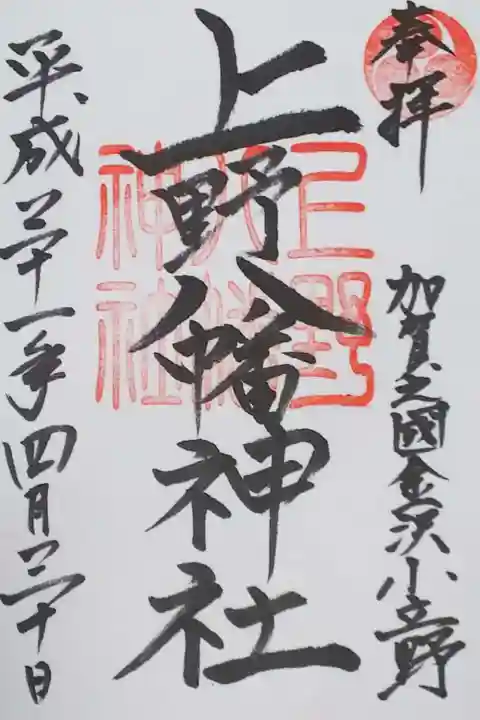 奉拝
加賀之國金沢小立野
上野八幡神社
上野
八幡
神社
平成三十一年四月三十日